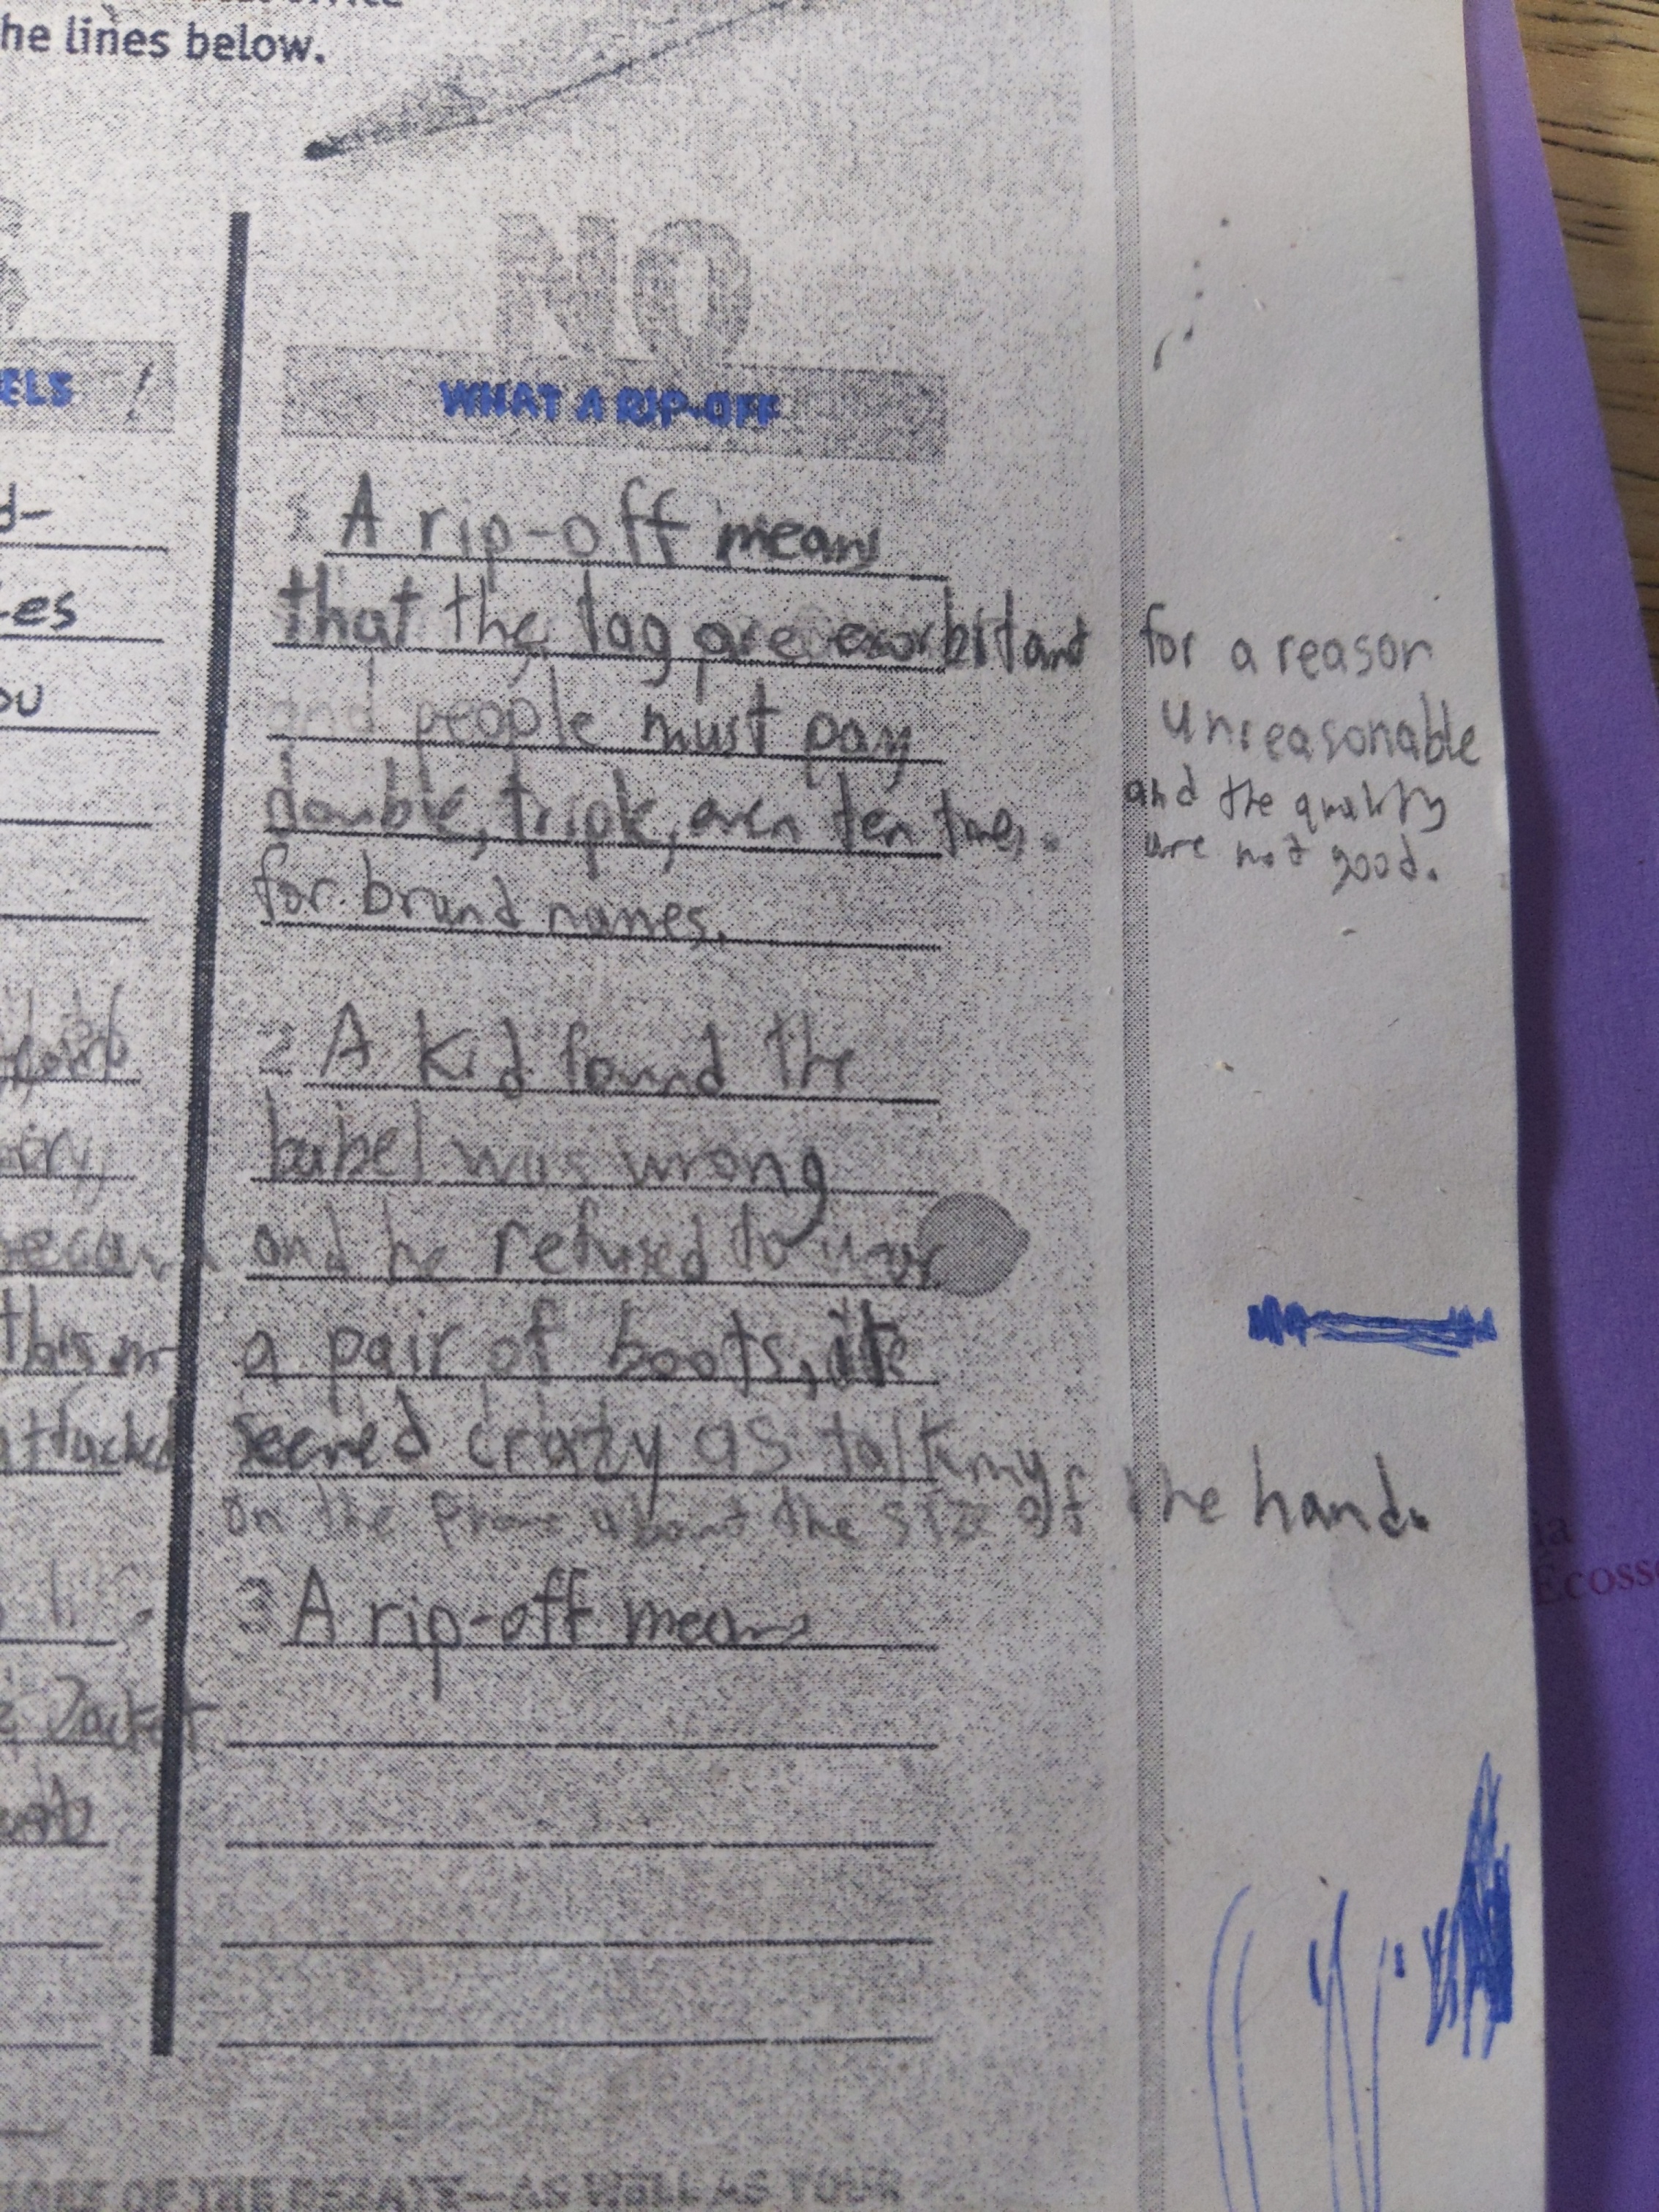 he lines below.
NO
ELS !
WHAT A RIP-OFF
d-
1 A rip-off means
es
that the tag are exorbitant for a reason
ou
and people must pay unreasonable
double, triple, even ten times. and the quality
are not good.
for brand names.
2 A kid found the
babel was wrong
and he refused to wear
this
a pair of boots, it
attached
seemed crazy as talking
on the phone about the size of the hand.
3 A rip-off means
Jacket
OF THE DEBATE—AS WELL AS YOUR
ia
Écosse